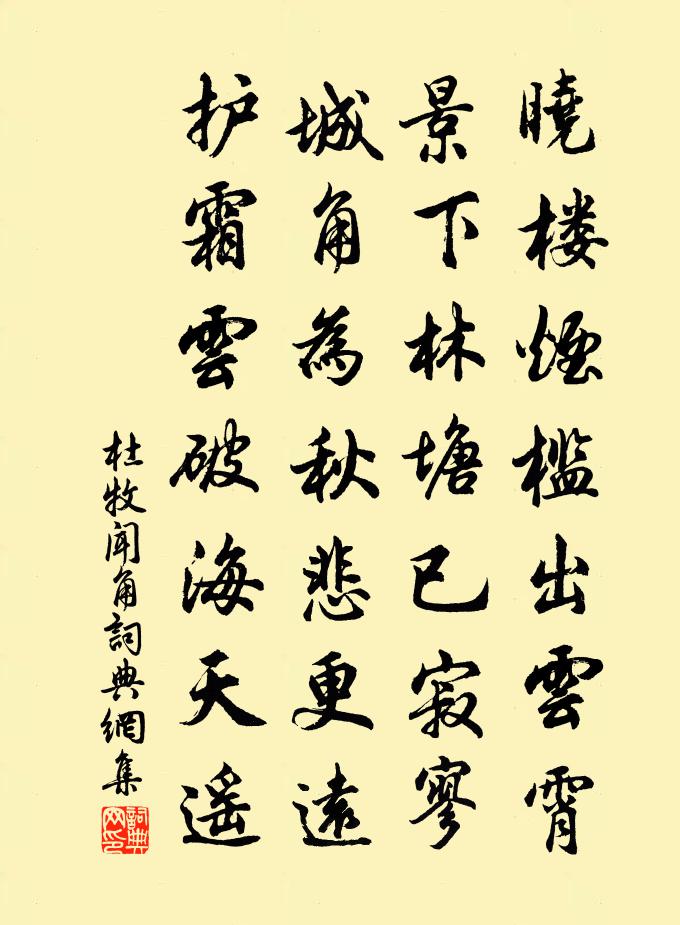 曉楼煙槛出雲霄
景下林塘已寂寥
城角為秋悲更遠
护霜雲破海天遥
杜牧聞角詞典網集
詞典网印